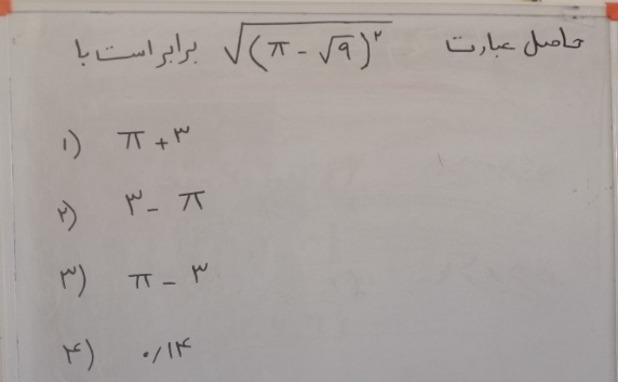 حاصل عبارت √(π - √۹)^۲ برابر است با
۱) π + ۳
۲) ۳ - π
۳) π - ۳
۴) ۰/۱۴